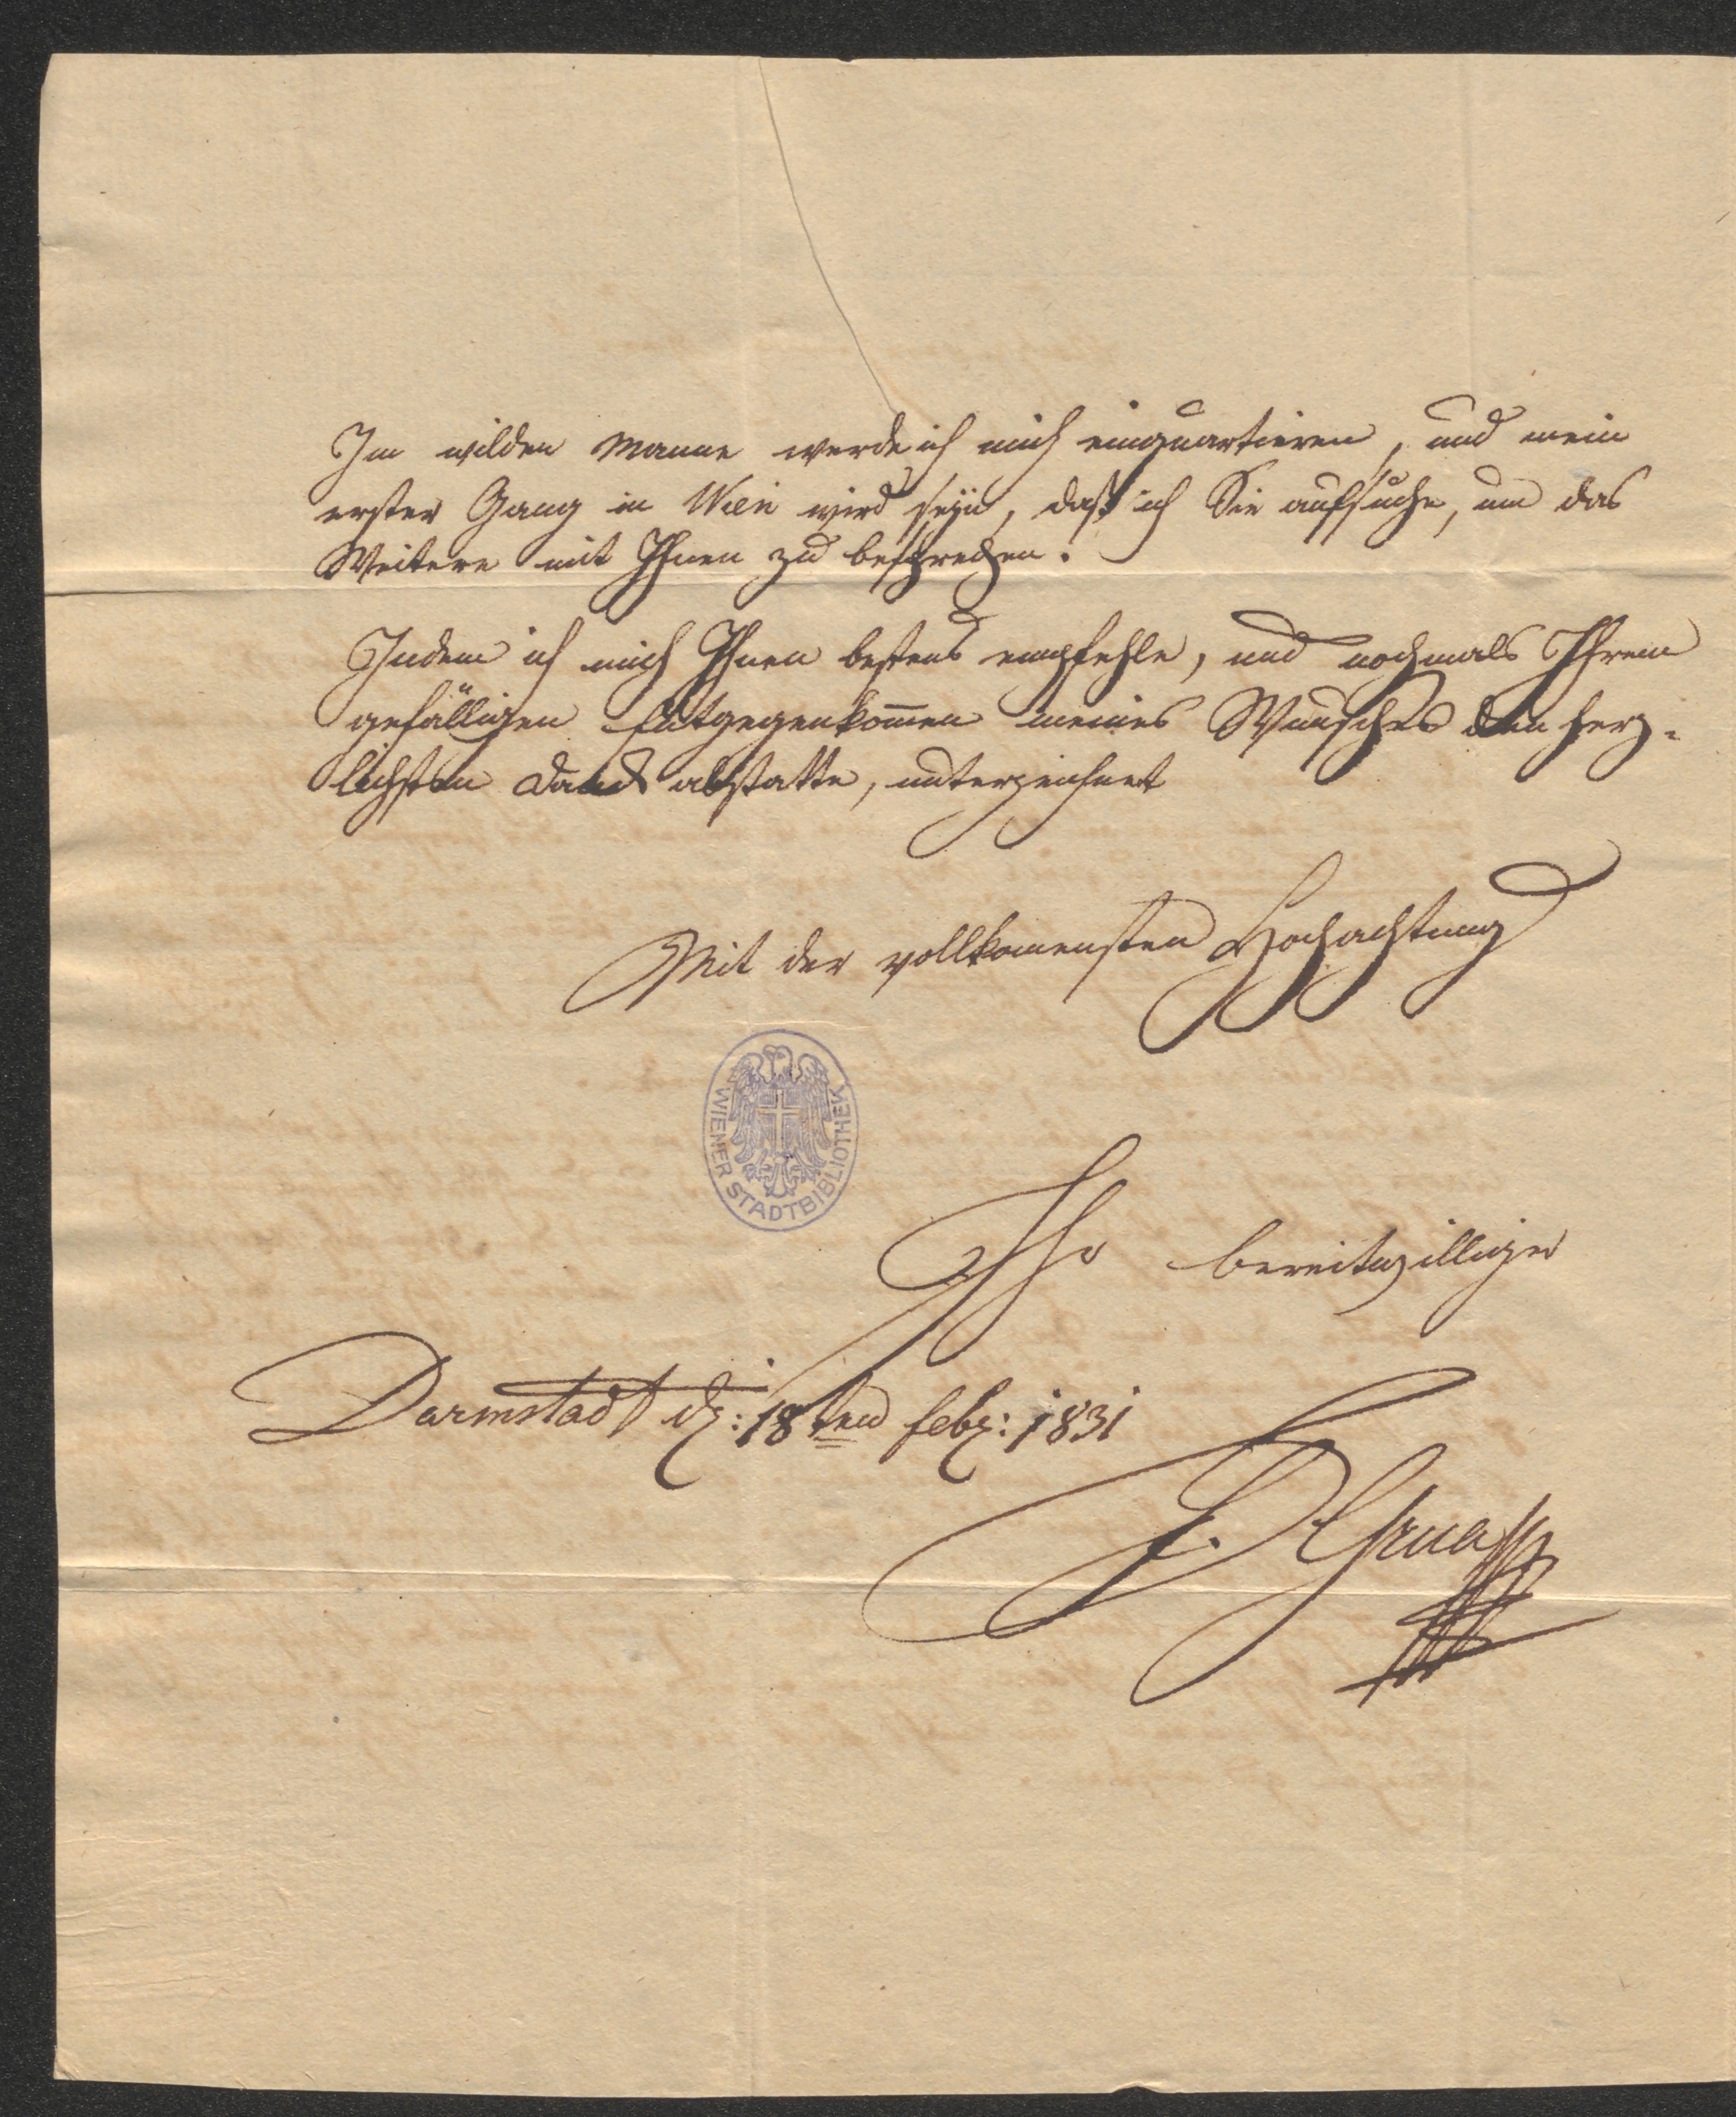 Im wilden Manne werde ich mich einquartieren, und mein
erster Gang in Wien wird seyn, daß ich Sie aufsuche, um das
Weitere mit Ihnen zu besprechen.
Indem ich mich Ihnen bestens empfehle, und nochmals Ihrem
gefälligen Entgegenkom̅en meines Wunsches den herz-
lichsten Dank abstatte, unterzeichnet
Mit der vollkomensten Hochachtung
WIENER STADTBIBLIOTHEK
Ihr bereitwilliger
Darmstadt d: 18ten Feb: 1831
F.